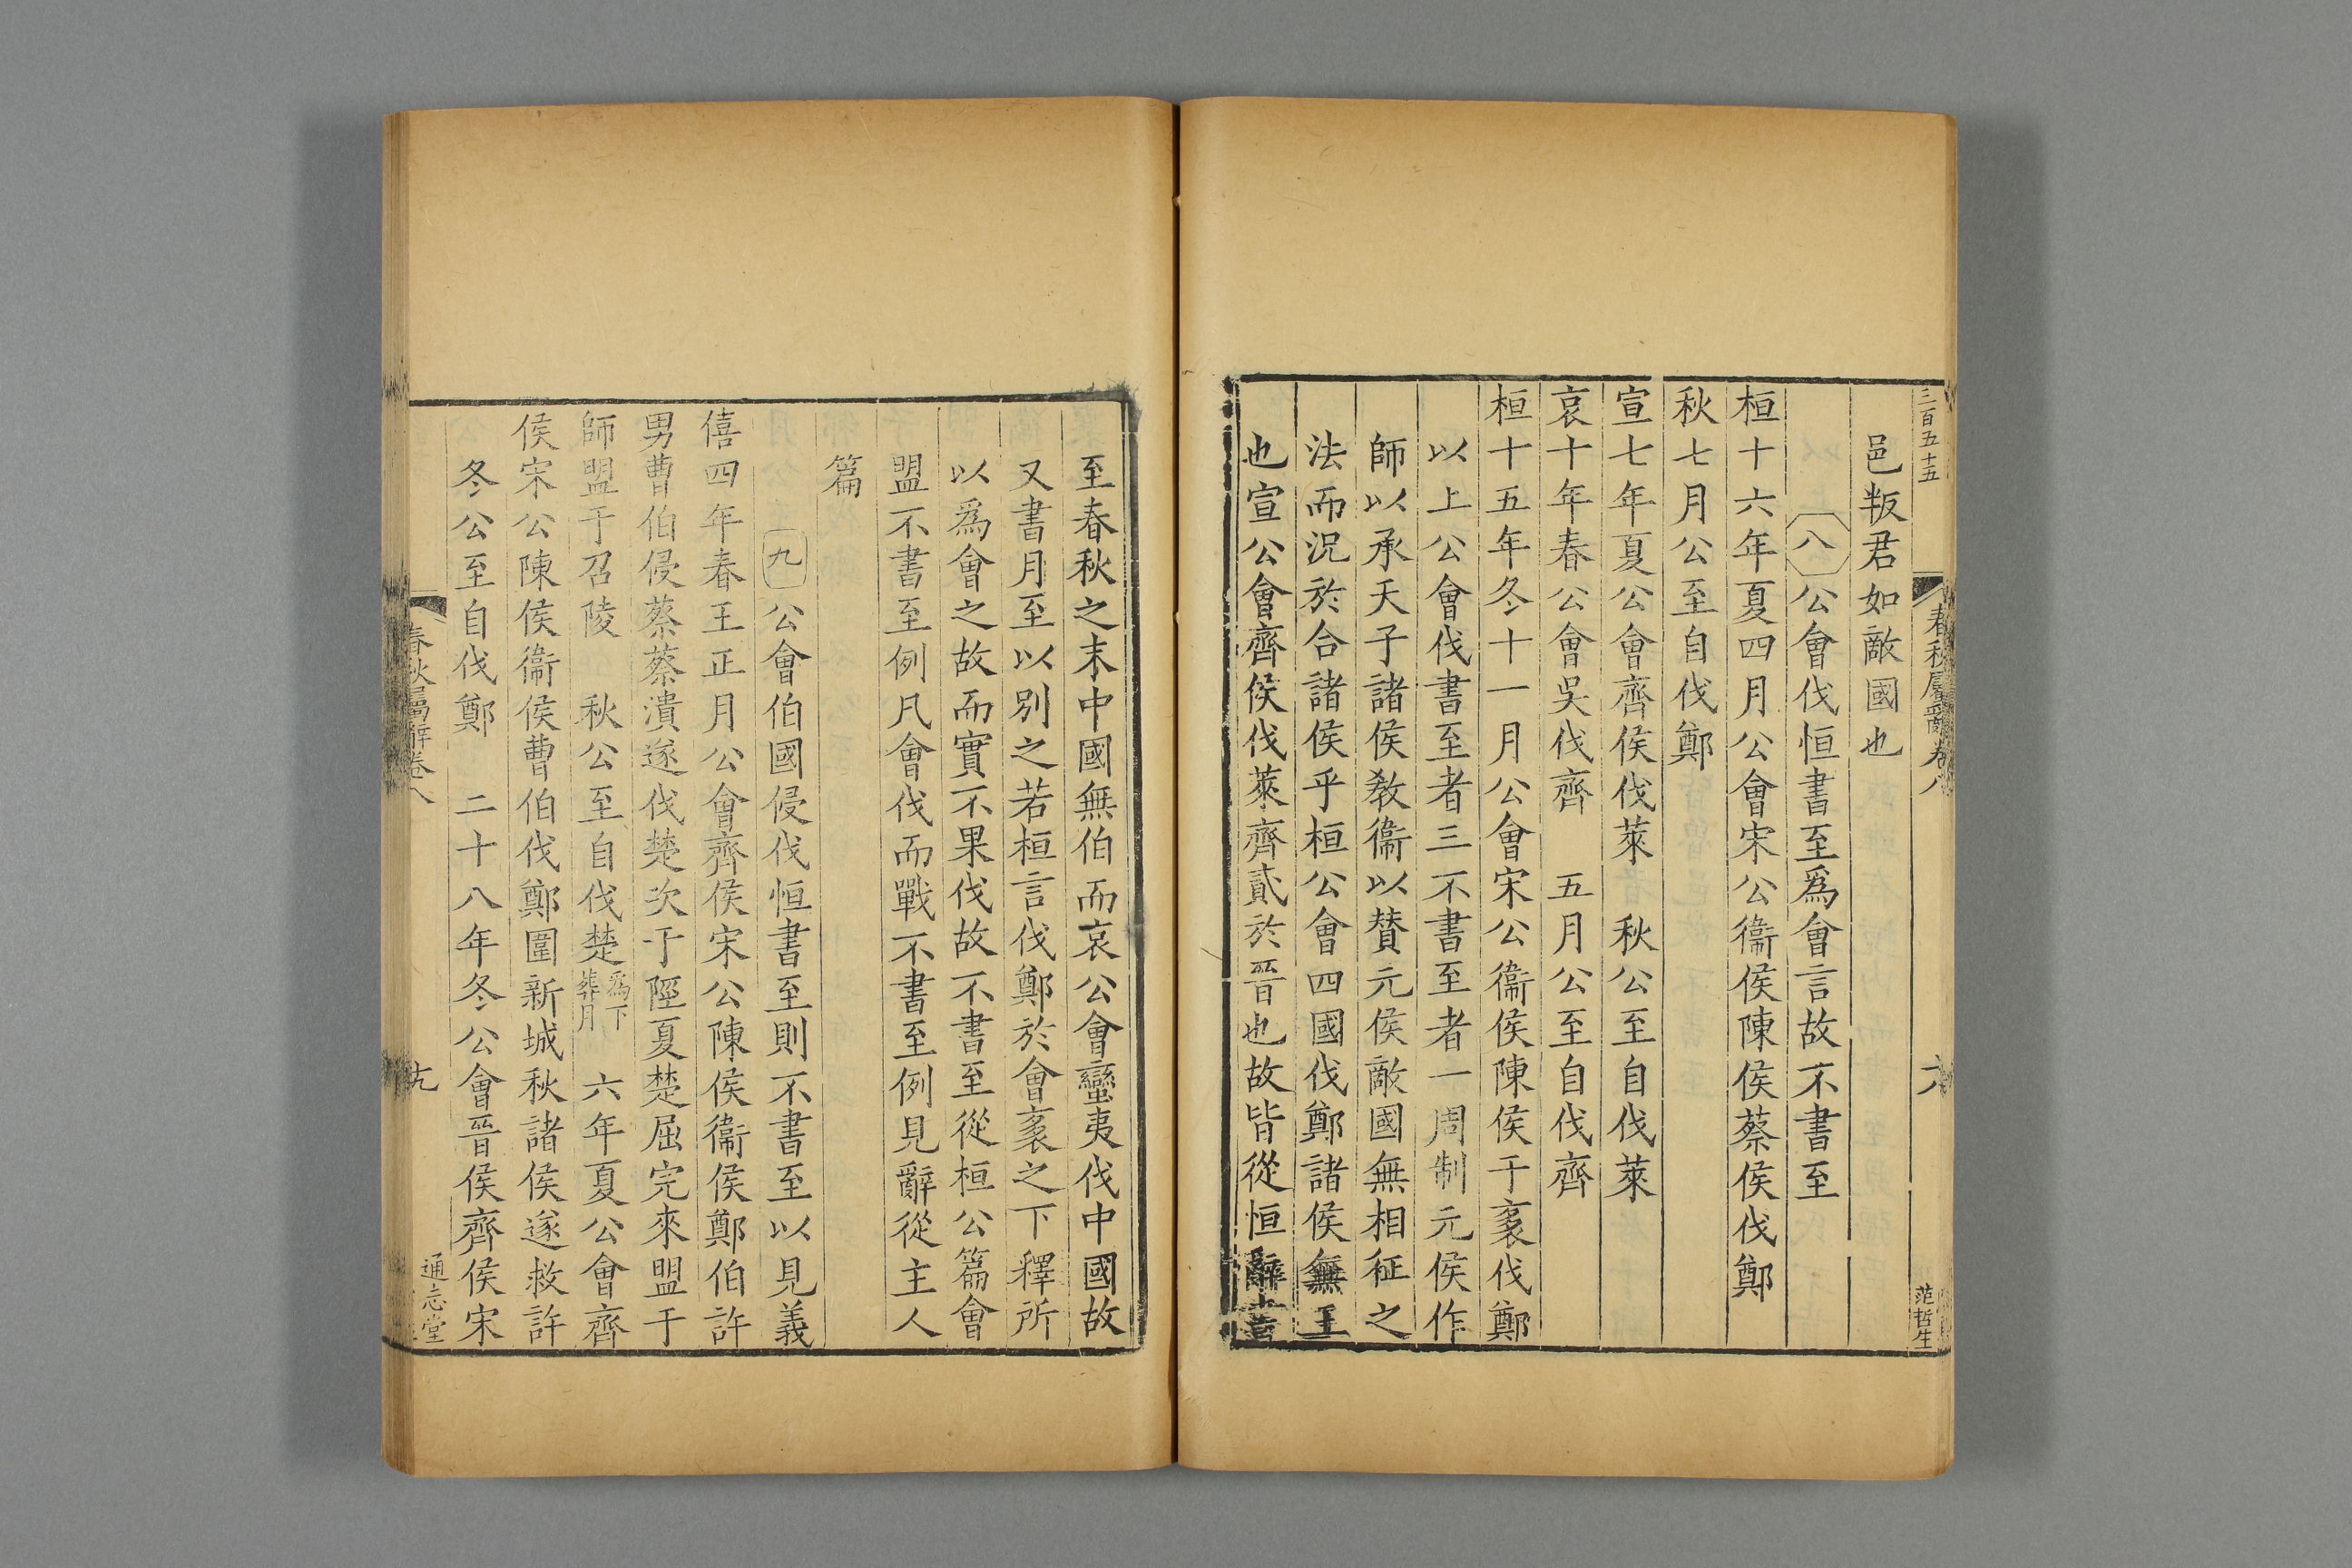 三百五十五
春秋屬辭卷八
六
范哲生
邑叛君如敵國也
八 公會伐恒書至爲會言故不書至
桓十六年夏四月公會宋公衞侯陳侯蔡侯伐鄭
秋七月公至自伐鄭
宣七年夏公會齊侯伐萊 秋公至自伐萊
哀十年春公會吳伐齊 五月公至自伐齊
桓十五年冬十一月公會宋公衞侯陳侯于袤伐鄭
以上公會伐書至者三不書至者一周制元侯作
師以承天子諸侯敎衞以賛元侯敵國無相征之
法而況於合諸侯乎桓公會四國伐鄭諸侯無王
也宣公會齊侯伐萊齊貳於晉也故皆從恒辭書
至春秋之末中國無伯而哀公會蠻夷伐中國故
又書月至以別之若桓言伐鄭於會袤之下釋所
以爲會之故而實不果伐故不書至從桓公篇會
盟不書至例凡會伐而戰不書至例見辭從主人
篇
九 公會伯國侵伐恒書至則不書至以見義
僖四年春王正月公會齊侯宋公陳侯衞侯鄭伯許
男曹伯侵蔡蔡潰遂伐楚次于陘夏楚屈完來盟于
師盟于召陵 秋公至自伐楚爲下葬月 六年夏公會齊
侯宋公陳侯衞侯曹伯伐鄭圍新城秋諸侯遂救許
冬公至自伐鄭 二十八年冬公會晉侯齊侯宋
春秋屬辭卷八
通志堂